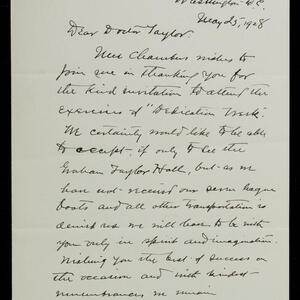 Washington D.C.
May 25, 1928
Dear Doctor Taylor.
Miss Chambers wishes to
join me in thanking you for
the kind invitation to attend the
exercises of "Dedication Week."
We certainly would like to be able
to accept - if only to see the
Graham Taylor Hall, but as we
have not received our seven league
boots and all other transportation is
denied us we will have to be with
you only in spirit and imagination.
Wishing you the best of success on
the occasion and with kindest
remembrances we remain